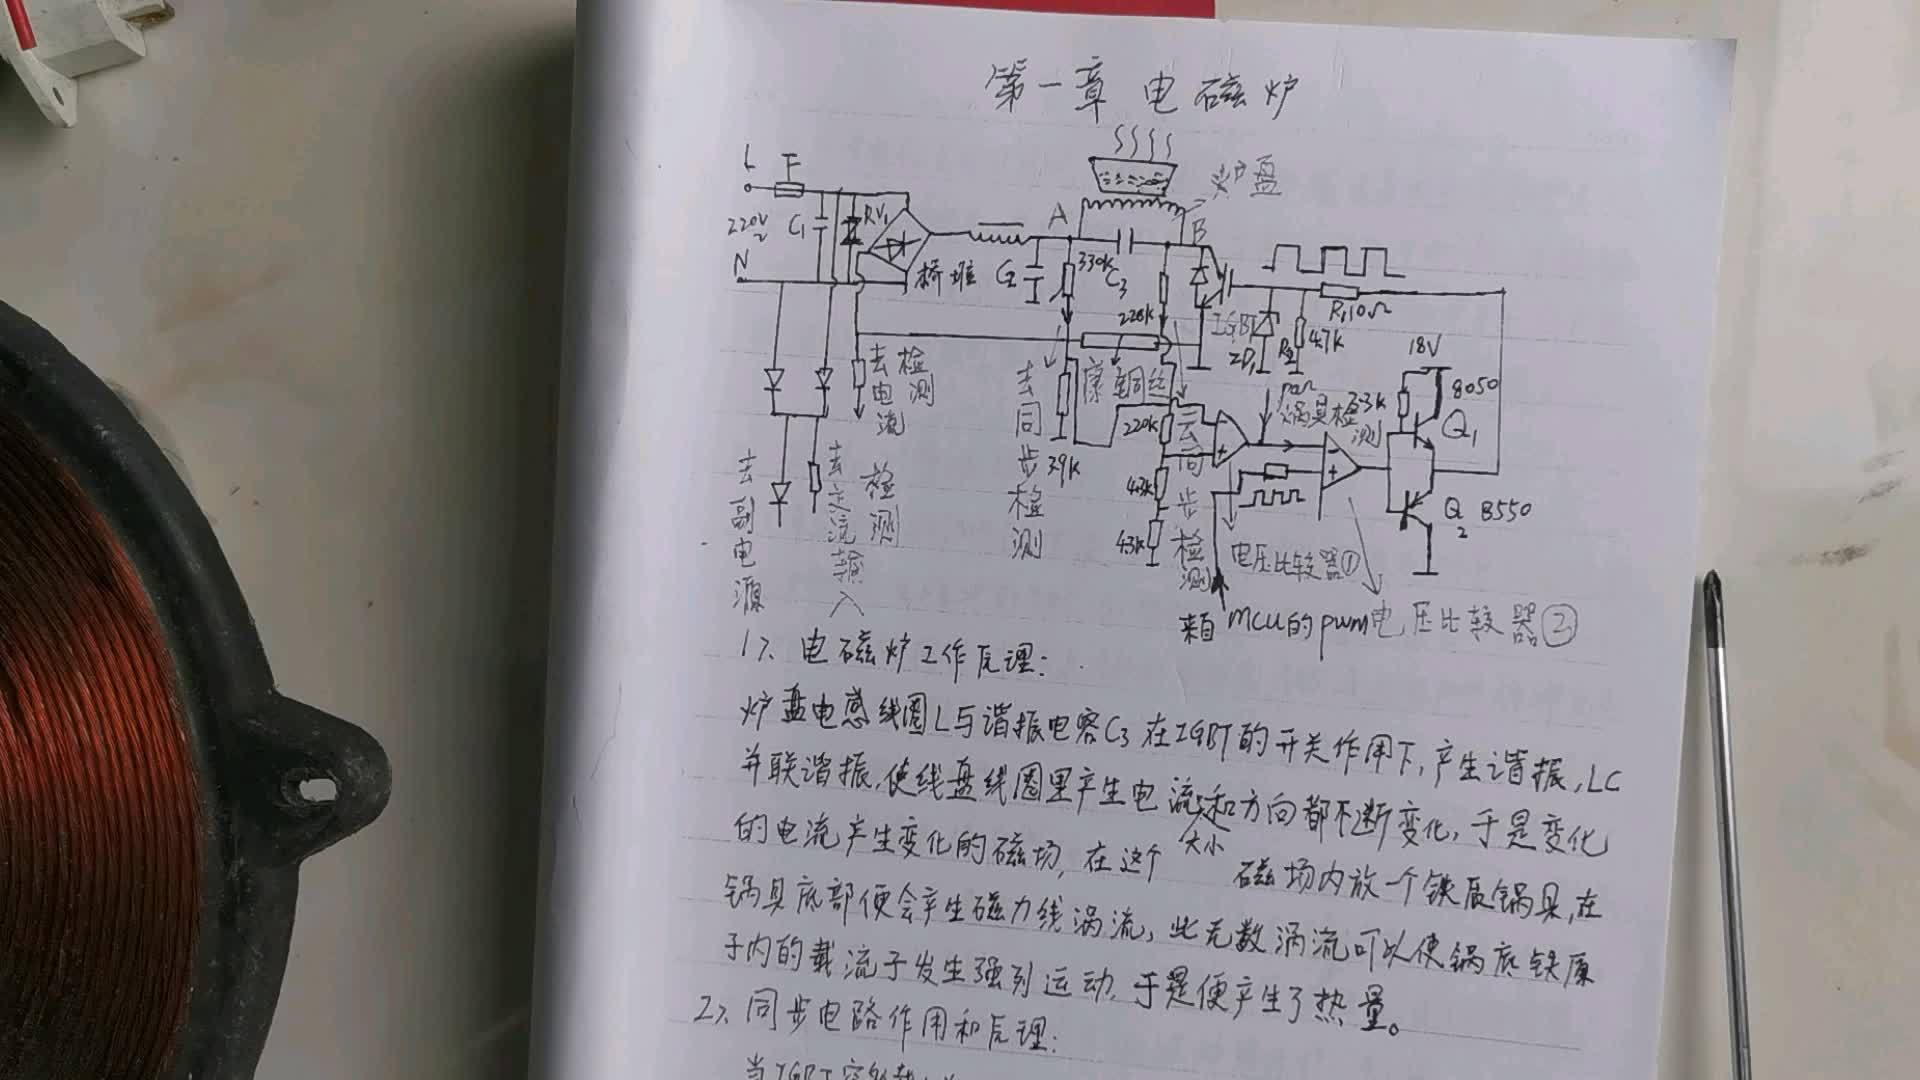 第一章 电磁炉
L F
220V
C1
RV1
N
桥堆
C2
A
B
炉盘
330K
C3
228K
IGBT
ZD1
R1 10Ω
R2
4.7K
18V
8050
Q1
3.3K
锅具检测
去检测电流
去同步检测
39K
康铜丝
220K
去同步检测
43K
43K
Q2 8550
去副电源
检测
电压比较器①
来自MCU的pwm
电压比较器②
1>、电磁炉工作原理:
炉盘电感线圈L与谐振电容C3在IGBT的开关作用下,产生谐振,LC
并联谐振,使线盘线圈里产生电流大小和方向都不断变化,于是变化
的电流产生变化的磁场,在这个磁场内放一个铁质锅具,在
锅具底部便会产生磁力线涡流,此无数涡流可以使锅底铁原
子内的载流子发生强列运动,于是便产生了热量。
2>、同步电路作用和原理:
当IGBT